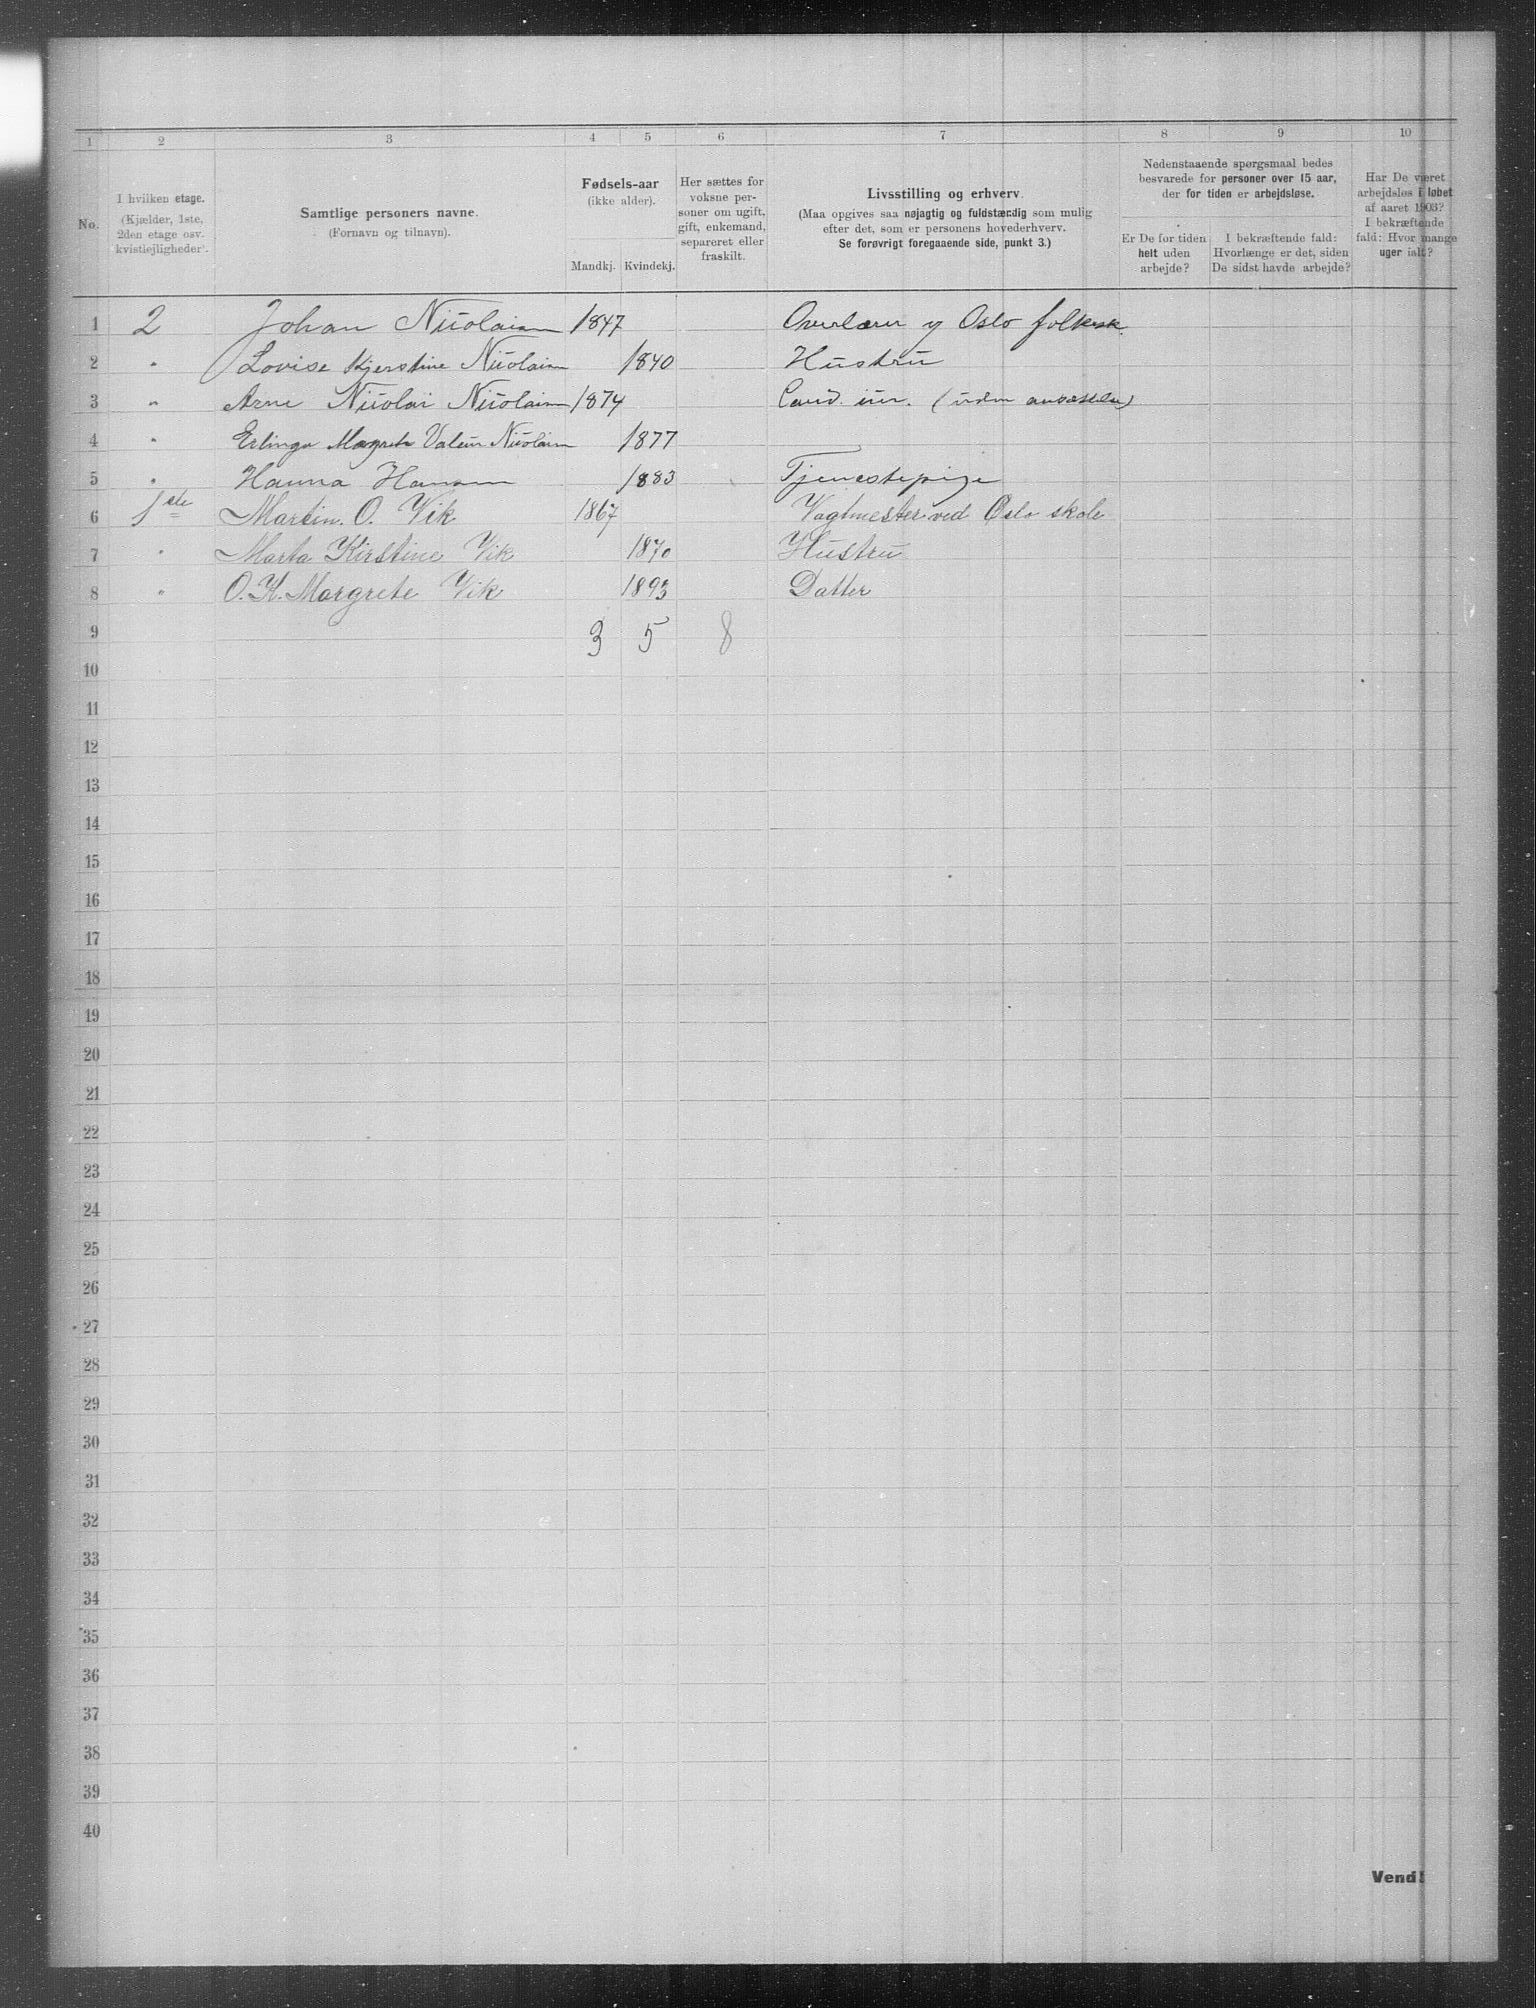 1 2 3 4 5 6 7 8 9 10
No.
I hvilken etage.
(Kjælder, 1ste,
2den etage osv.
kvistlejligheder).
Samtlige personers navne.
(Fornavn og tilnavn).
Fødsels-aar
(ikke alder).
Mandkj. Kvindekj.
Her sættes for
voksne per-
soner om ugift,
gift, enkemand,
separeret eller
fraskilt.
Livsstilling og erhverv.
(Maa opgives saa nøjagtig og fuldstændig som mulig
efter det, som er personens hovederhverv.
Se forøvrigt foregaaende side, punkt 3.)
Nedenstaaende spørgsmaal bedes
besvarede for personer over 15 aar,
der for tiden er arbejdsløse.
Er De for tiden
helt uden
arbejde?
I bekræftende fald:
Hvorlænge er det, siden
De sidst havde arbejde?
Har De været
arbejdsløs i løbet
af aaret 1903?
I bekræftende
fald: Hvor mange
uger ialt?
1 2 Johan Nicolaisen 1847 Overlærer v Oslo folkesk.
2 " Lovise Kjerstine Nicolaisen 1840 Hustru
3 " Arne Nicolai Nicolaisen 1874 Cand. jur. (uden ansættelse)
4 " Erlinga Magrete Valeur Nicolaisen 1877
5 " Hanna Hansen 1883 Tjenestepige
6 1ste Martin. O. Vik 1867 Vagtmester ved Oslo skole
7 " Marta Kirstine Vik 1870 Hustru
8 " O. K. Margrete Vik 1893 Datter
9 3 5 8
10
11
12
13
14
15
16
17
18
19
20
21
22
23
24
25
26
27
28
29
30
31
32
33
34
35
36
37
38
39
40
Vend!